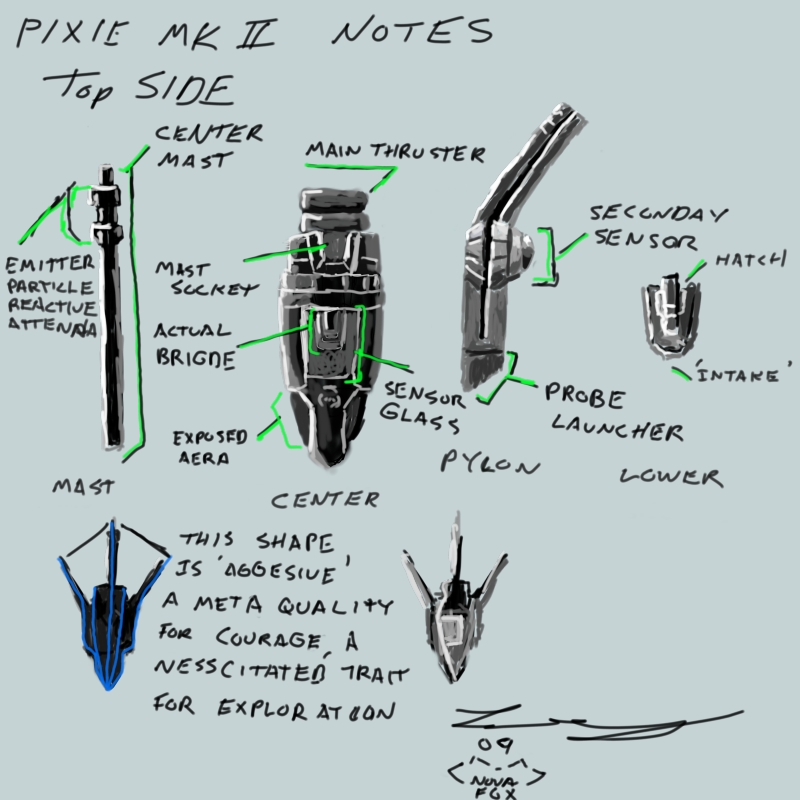 PIXIE MK II NOTES
TOP SIDE
CENTER
MAST
MAIN THRUSTER
SECONDAY
SENSOR
HATCH
EMITTER
PARTICLE
REACTIVE
ATTENNA
MAST
SOCKET
ACTUAL
BRIGDE
SENSOR
GLASS
EXPOSED
AERA
PROBE
LAUNCHER
'INTAKE'
MAST
CENTER
PYLON
LOWER
THIS SHAPE
IS 'AGGESIVE'
A META QUALITY
FOR COURAGE, A
NESSCITATED TRAIT
FOR EXPLORATION
09
NOVA
FOX